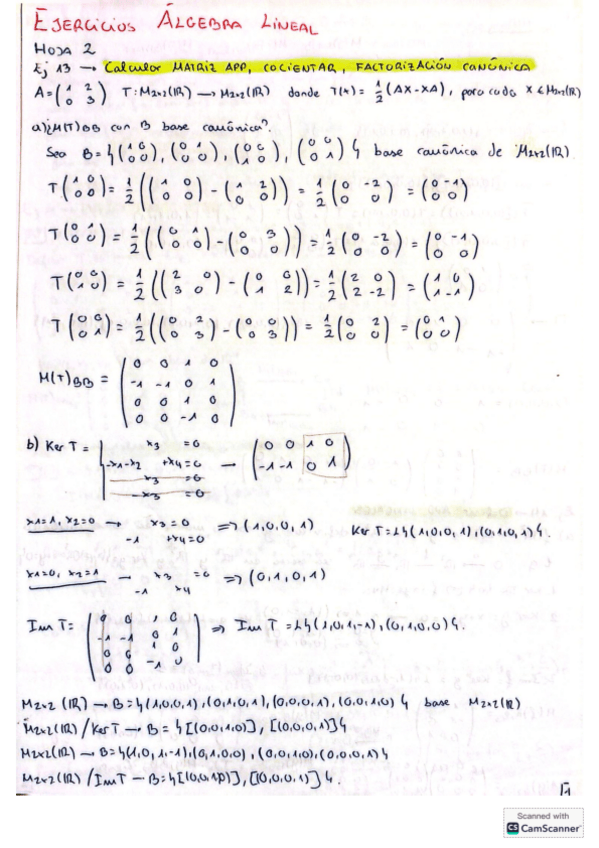 EJERCICIOS ÁLGEBRA LINEAL
HOJA 2
Ej 13 → Calcular MATRIZ APP, COCIENTAR, FACTORIZACIÓN CANÓNICA
A = (1 2 / 0 3) T: M2x2(ℝ) → M2x2(ℝ) donde T(x) = 1/2 (AX - XA), para cada X ∈ M2x2(ℝ)
a) ¿M(T)BB con B base canónica?
Sea B = {(1 0 / 0 0), (0 1 / 0 0), (0 0 / 1 0), (0 0 / 0 1)} base canónica de M2x2(ℝ).
T(1 0 / 0 0) = 1/2 ((1 0 / 0 0) - (1 2 / 0 0)) = 1/2 (0 -2 / 0 0) = (0 -1 / 0 0)
T(0 1 / 0 0) = 1/2 ((0 1 / 0 0) - (0 3 / 0 0)) = 1/2 (0 -2 / 0 0) = (0 -1 / 0 0)
T(0 0 / 1 0) = 1/2 ((2 0 / 3 0) - (0 0 / 1 2)) = 1/2 (2 0 / 2 -2) = (1 0 / 1 -1)
T(0 0 / 0 1) = 1/2 ((0 2 / 0 3) - (0 0 / 0 3)) = 1/2 (0 2 / 0 0) = (0 1 / 0 0)
M(T)BB = (0 0 1 0 / -1 -1 0 1 / 0 0 1 0 / 0 0 -1 0)
b) Ker T = { x3 = 0 / -x1-x2 +x4 = 0 / x3 = 0 / -x3 = 0 → (0 0 1 0 / -1 -1 0 1)
x1=1, x2=0 → x3 = 0 / -1 +x4 = 0 => (1,0,0,1) Ker T = L{(1,0,0,1), (0,1,0,1)}.
x1=0, x2=1 → x3 = 0 / -1 x4 => (0,1,0,1)
Im T = (0 0 1 0 / -1 -1 0 1 / 0 0 1 0 / 0 0 -1 0) => Im T = L{(1,0,1,-1), (0,1,0,0)}.
M2x2(ℝ) → B = {(1,0,0,1), (0,1,0,1), (0,0,0,1), (0,0,1,0)} base M2x2(ℝ)
M2x2(ℝ) / Ker T → B = {[(0,0,1,0)], [(0,0,0,1)]}
M2x2(ℝ) → B = {(1,0,1,-1), (0,1,0,0), (0,0,1,0), (0,0,0,1)}
M2x2(ℝ) / Im T → B = {[(0,0,1,0)], [(0,0,0,1)]}.
Scanned with
CS CamScanner